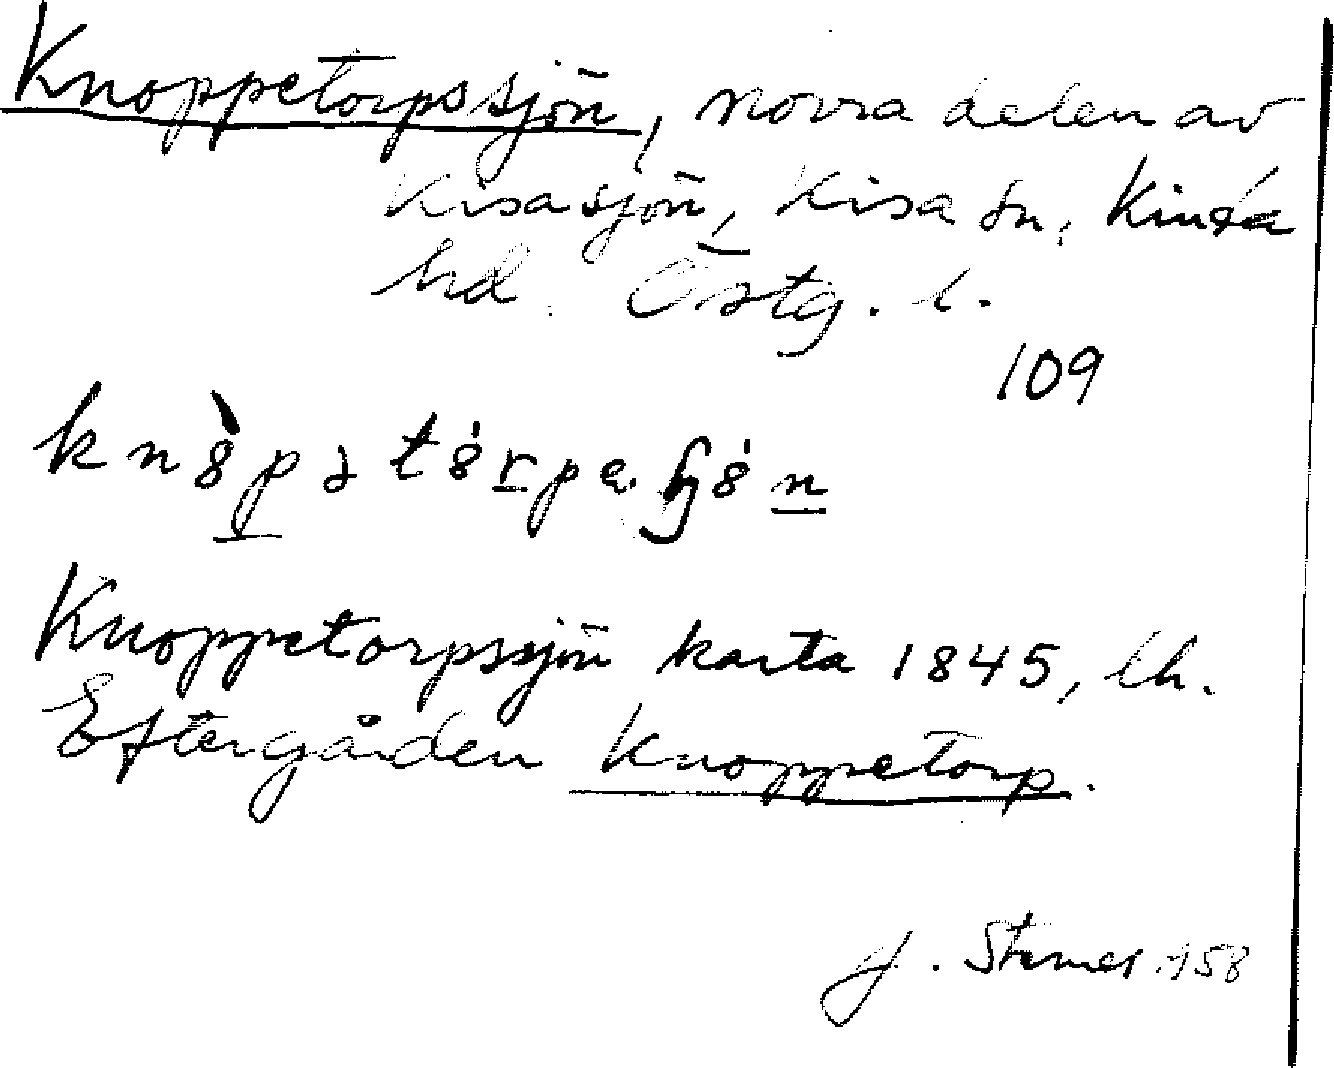 Knoppetorpssjön, norra delen av
Kisasjön, Kisa sn, Kinda
hd. Östg. l.
109
Knoppetorpssjön karta 1845, lh.
Eftergården Knoppetorp.
J. 1958